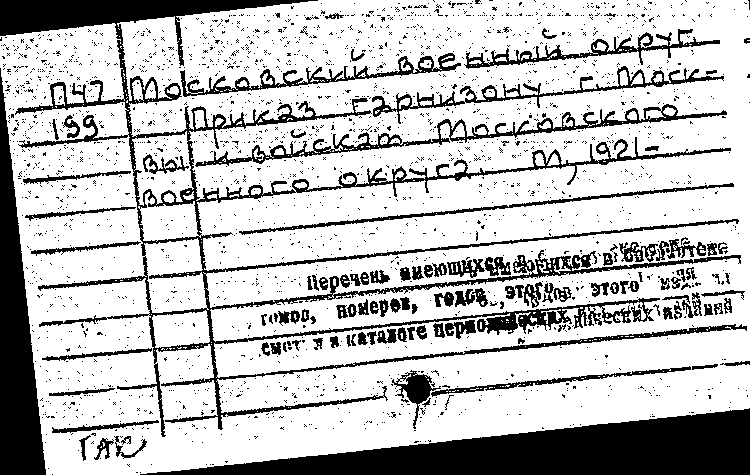 П47 Московский военный округ.
199 Приказ гарнизону г. Моск-
вы и войскам Московского
военного округа. М., 1921-
Перечень имеющихся в библиотеке
томов, номеров, годов этого
смотри в каталоге периодических изданий
ГАК